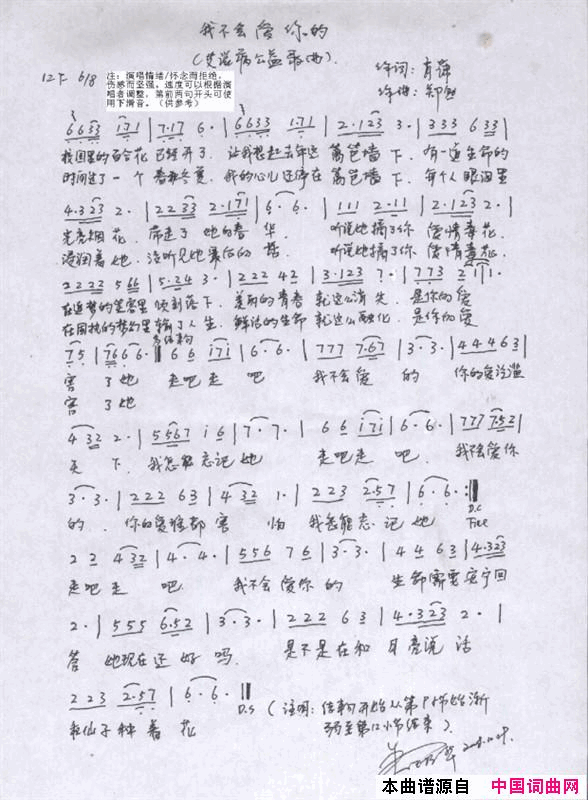 我不会爱你的
(艾滋病公益歌曲)
作词：肖
作谱：郑
1=F 6/8
注：演唱情绪/怀念而拒绝，
伤感而坚强。速度可以根据演
唱者调整，第前两句开头可使
用下滑音。（供参考）
6633 171 | 7·17 6· | 6633 171 | 2·123 3· | 333 633 |
校园里的百合花 已经开了．让我想起去年这 篱笆墙 下．有一道生命的
时间过了一个 春和冬夏．我的心儿还停在 篱笆墙 下．每个人眼泪里
4·323 2· | 2233 2·171 | 6· 6· | 111 2·11 | 2·123 2· |
光亮烟花．带走了 她的春 华． 听说她摘了你 爱情毒花．
浸润着她．没听见她最后的 话 听说她摘了你 爱情毒花．
2222 566 | 5·24 3· | 222 42 | 3·123 7· | 773 2 1 1·
在追梦的 里 刚刚落下．美丽的青春 就这么消失．是你的爱
在困扰的梦幻里 输了人生．鲜活的生命 就这么融化．是你的爱
75 | 766 6· 66 171 | 6· 6· | 777 7·67 | 3· 3· | 44463 |
害 了她 走吧走 吧 我不会爱 的 你的爱泛滥
害 了她
432 2· | 5567 16 | 7· 7· | 66 171 | 6· 6· | 777 752 |
天 下．我怎能忘记她 走吧走 吧． 我不会爱你
3· 3· | 222 63 | 432 1· | 223 2·57 | 6· 6· :‖
的．你的爱谁都害 怕 我怎能忘记她 D.C Fine
22 432 | 4· 4· | 556 76 | 3· 3· | 44 63 | 4·323
走吧走 吧． 我不会爱你的 生命需要安宁回
2· | 555 6·52 | 3· 3· | 222 63 | 4·323 2· |
答 她现在还好吗． 是不是在和 月亮说 话
223 2·57 | 6· 6· ‖ D.S (注明：结构开始从第1小节始渐
和仙子种着花 弱至第12小节结束)
本曲谱源自 中国词曲网